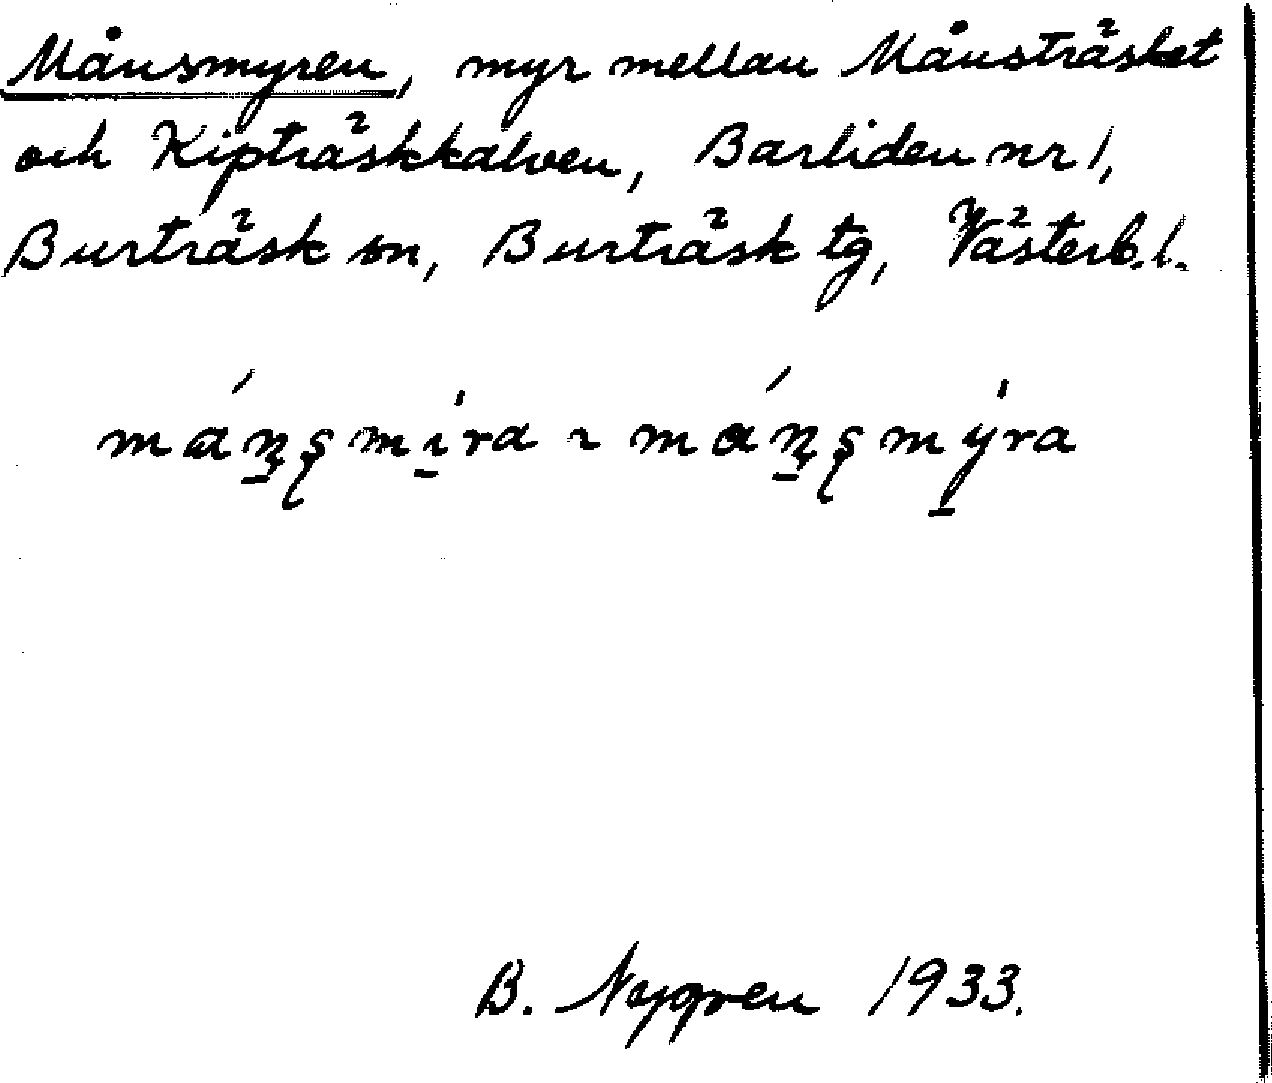 Månsmyren, myr mellan Månsträsket
och Kipträskkalven, Barliden nr 1,
Burträsk sn, Burträsk tg, Västerb. l.
mánsmira ~ mánsmyra
B. Nygren 1933.